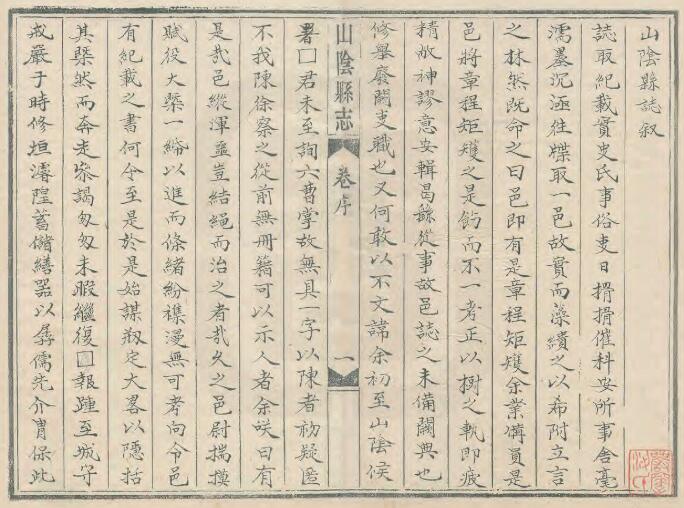 山陰縣誌叙
誌取紀載實史氏事俗吏日搰搰催科安所事舍毫
濡墨沉涵往牒取一邑故實而藻繢之以希附立言
之林然既命之曰邑即有是章程矩矱余業備員是
邑將章程矩矱之是飭而不一考正以樹之執即疲
精敝神謬意安輯曷繇從事故邑誌之未備闕典也
修舉廢闕吏職也又何敢以不文諱余初至山陰候
山陰縣志 卷序 一
署□君未至詢六曹掌故無具一字以陳者初疑匿
不我陳徐察之從前無冊籍可以示人者余咲曰有
是哉邑縱渾噩豈結繩而治之者哉久之邑尉揣摸
賦役大槩一緉以進而條緒紛襍漫無可考向令邑
有紀載之書何令至是於是始謀刱定大畧以隱括
其槩然而奔走叅謁匆匆未暇繼復□報踵至城守
戒嚴于時修垣濬隍蓄儲繕器以孱儒先介胄保此